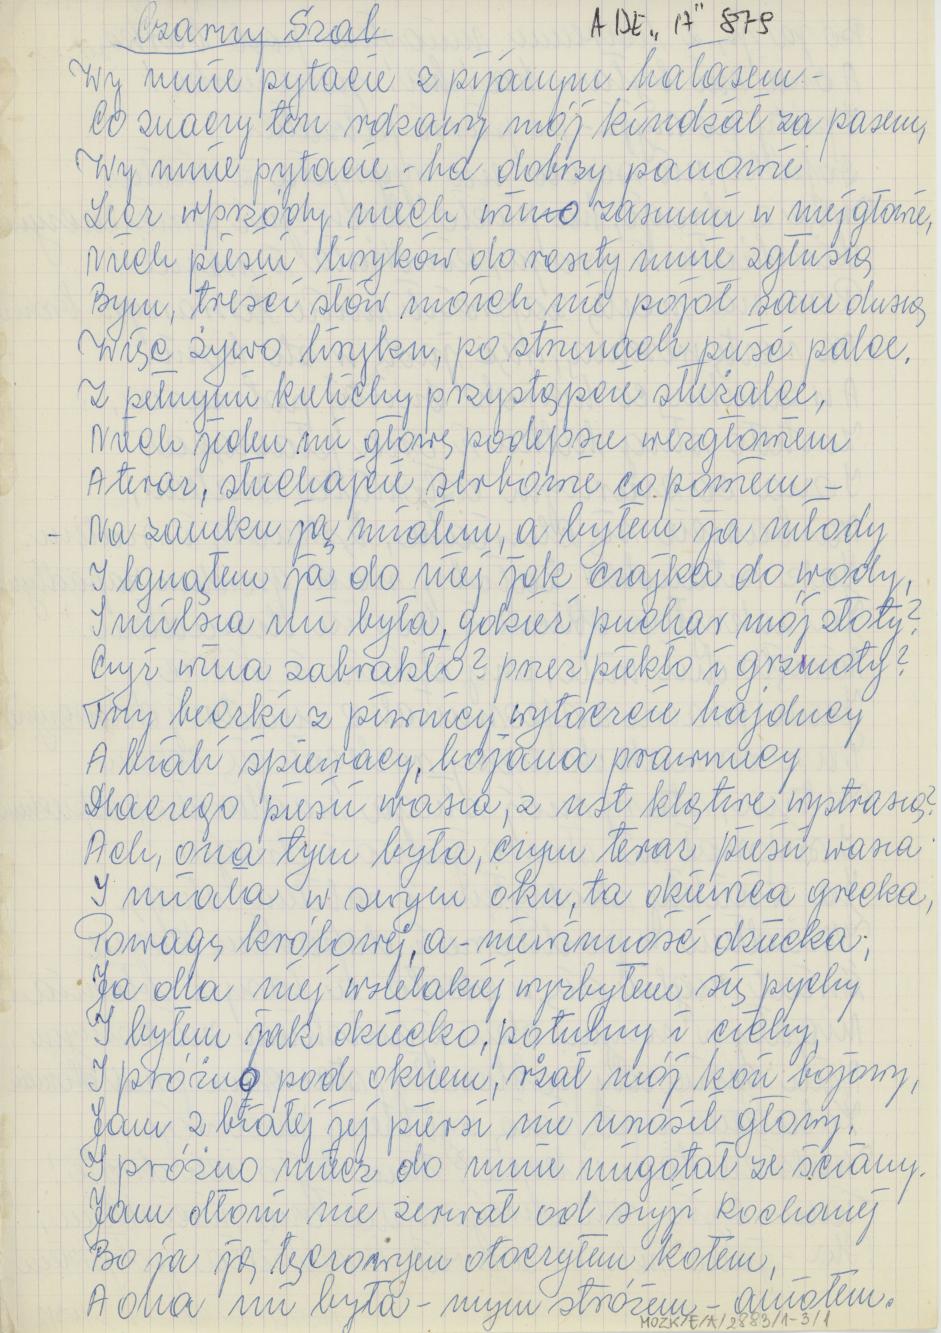 Czarny Szal
A DE „17” 879
Wy mnie pytacie z pijanym hałasem -
Co znaczy ten rdzawy mój kindżał za pasem,
Wy mnie pytacie - ha dobrzy panowie
Lecz wprzódy niech wino zaszumi w mej głowie,
Niech pieśń liryków do reszty mnie zgłuszą
Bym, treści słów moich nie pojął sam duszą
Więc żywo liryku, po strunach puść palce,
Z pełnymi kielichy przystąpcie służalce,
Niech jeden mi głowę podeprze wezgłowiem
A teraz, słuchajcie serbowie co powiem -
- Na zamku ją miałem, a byłem ja młody
I lgnąłem ja do niej jak czajka do wody,
I milsza mi była, gdzież puchar mój złoty?
Czyż wina zabrakło? przez piekło i grzmoty?
Trzy beczki z piwnicy wytoczcie hajducy
A biali śpiewacy, bojana prawnucy
Dlaczego pieśń wasza, z ust klątwe wystrasza?
Ach, ona tym była, czym teraz pieśń wasza
I miała w swym oku, ta dziewica grecka,
Powagę królowej, a - niewinność dziecka,
Ja dla niej wszelakiej wyzbyłem się pychy
I byłem jak dziecko, potulny i cichy,
I próżno pod oknem, rżał mój koń bojowy,
Jam z białej jej piersi nie wznosił głowy.
I próżno miecz do mnie migotał ze ściany.
Jam dłoni nie zerwał od szyji kochanej
Bo ja ją tęczowym otoczyłem kołem,
A ona mi była - mym stróżem - aniołem.
MOZK/E/A/2883/1-3/1